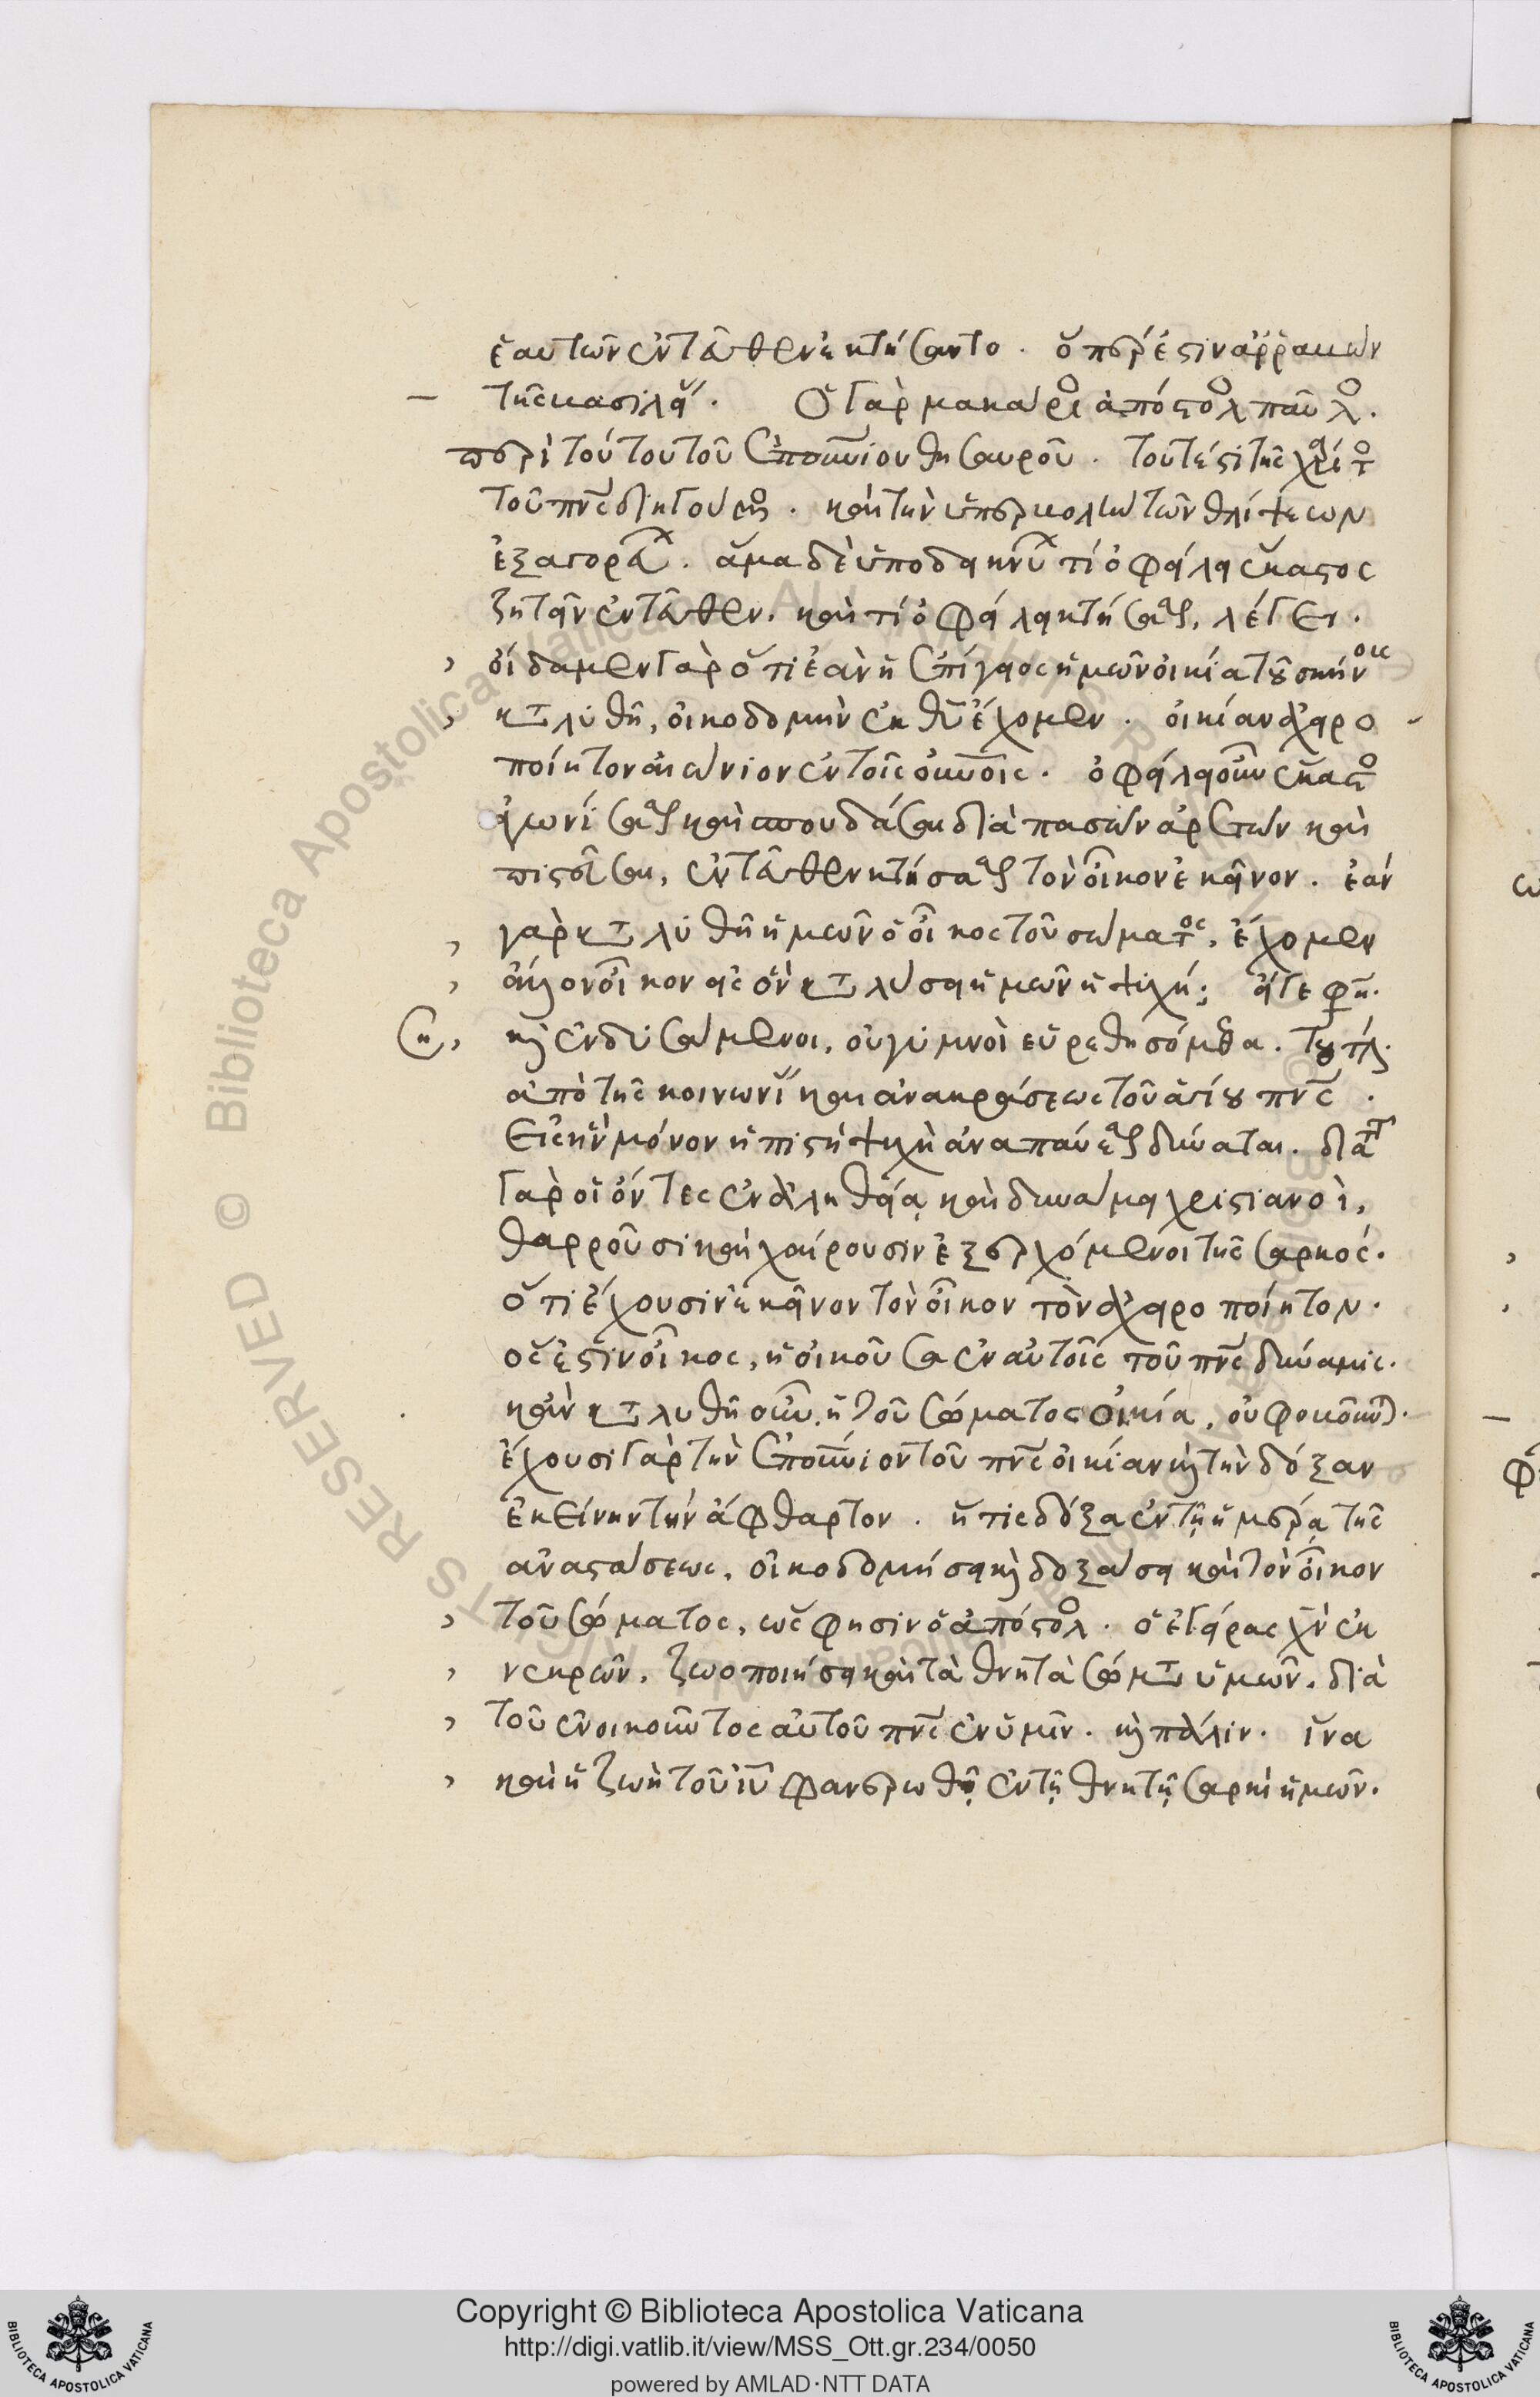 ἑαυτῶν ἐντεῦθεν ἐκτήσαντο. ὅπερ ἐστὶν ἀρραβὼν
τῆς βασιλείας. Ὁ γὰρ μακάριος ἀπόστολος παῦλος.
περὶ τούτου τοῦ ἐπουρανίου θησαυροῦ. τουτέστι τῆς χάριτος
τοῦ πνς διηγούμενος. καὶ τὴν ὑπερβολὴν τῶν θλίψεων
ἐξαγορεύων. ἅμα δὲ ὑποδεικνύων τί ὀφείλει ἕκαστος
ζητεῖν ἐντεῦθεν. καὶ τί ὀφείλει κτήσασθαι, λέγει.
οἴδαμεν γὰρ ὅτι ἐὰν ἡ ἐπίγειος ἡμῶν οἰκία τοῦ σκήνους
καταλυθῆ, οἰκοδομὴν ἐκ θυ ἔχομεν. οἰκίαν ἀχειρο
ποίητον αἰώνιον ἐν τοῖς οὐνοις. ὀφείλει οὖν ἕκαστος
ἀγωνίσασθαι καὶ σπουδάσαι διὰ πασῶν ἀρετῶν καὶ
πιστεῦσαι, ἐντεῦθεν κτήσασθαι τὸν οἶκον ἐκεῖνον. ἐὰν
γὰρ καταλυθῆ ἡμῶν ὁ οἶκος τοῦ σώματος, ἔχομεν
ἄλλον οἶκον εἰς ὃν καταλύσει ἡμῶν ἡ ψυχή; εἴγε φη.
καὶ ἐνδυσάμενοι, οὐ γυμνοὶ εὑρεθησόμεθα.
ἀπὸ τῆς κοινωνίας καὶ ἀνακράσεως τοῦ ἁγίου πνς.
εἰς ἣν μόνον ἡ πιστὴ ψυχὴ ἀναπαύεσθαι δύναται. διὰ τοῦτο
γὰρ οἱ ὄντες ἐν ἀληθείᾳ καὶ δυνάμει χριστιανοὶ,
θαρροῦσι καὶ χαίρουσιν ἐξερχόμενοι τῆς σαρκός.
ὅτι ἔχουσιν ἐκεῖνον τὸν οἶκον τὸν ἀχειροποίητον.
ὅς ἐστιν οἶκος, ἡ οἰκοῦσα ἐν αὐτοῖς τοῦ πνς δύναμις.
κἂν καταλυθῆ οὖν ἡ τοῦ σώματος οἰκία, οὐ φοβοῦνται.
ἔχουσι γὰρ τὴν ἐπουράνιον τοῦ πνς οἰκίαν καὶ τὴν δόξαν
ἐκείνην τὴν ἄφθαρτον. ἥτις δόξα ἐν τῇ ἡμέρᾳ τῆς
ἀναστάσεως, οἰκοδομήσει καὶ δοξάσει καὶ τὸν οἶκον
τοῦ σώματος, ὥς φησιν ὁ ἀπόστολος. ὁ ἐγείρας χν ἐκ
νεκρῶν, ζωοποιήσει καὶ τὰ θνητὰ σώματα ὑμῶν, διὰ
τοῦ ἐνοικοῦντος αὐτοῦ πνς ἐν ὑμῖν. καὶ πάλιν. ἵνα
καὶ ἡ ζωὴ τοῦ ιυ φανερωθῇ ἐν τῇ θνητῇ σαρκὶ ἡμῶν.
Copyright © Biblioteca Apostolica Vaticana
http://digi.vatlib.it/view/MSS_Ott.gr.234/0050
powered by AMLAD·NTT DATA